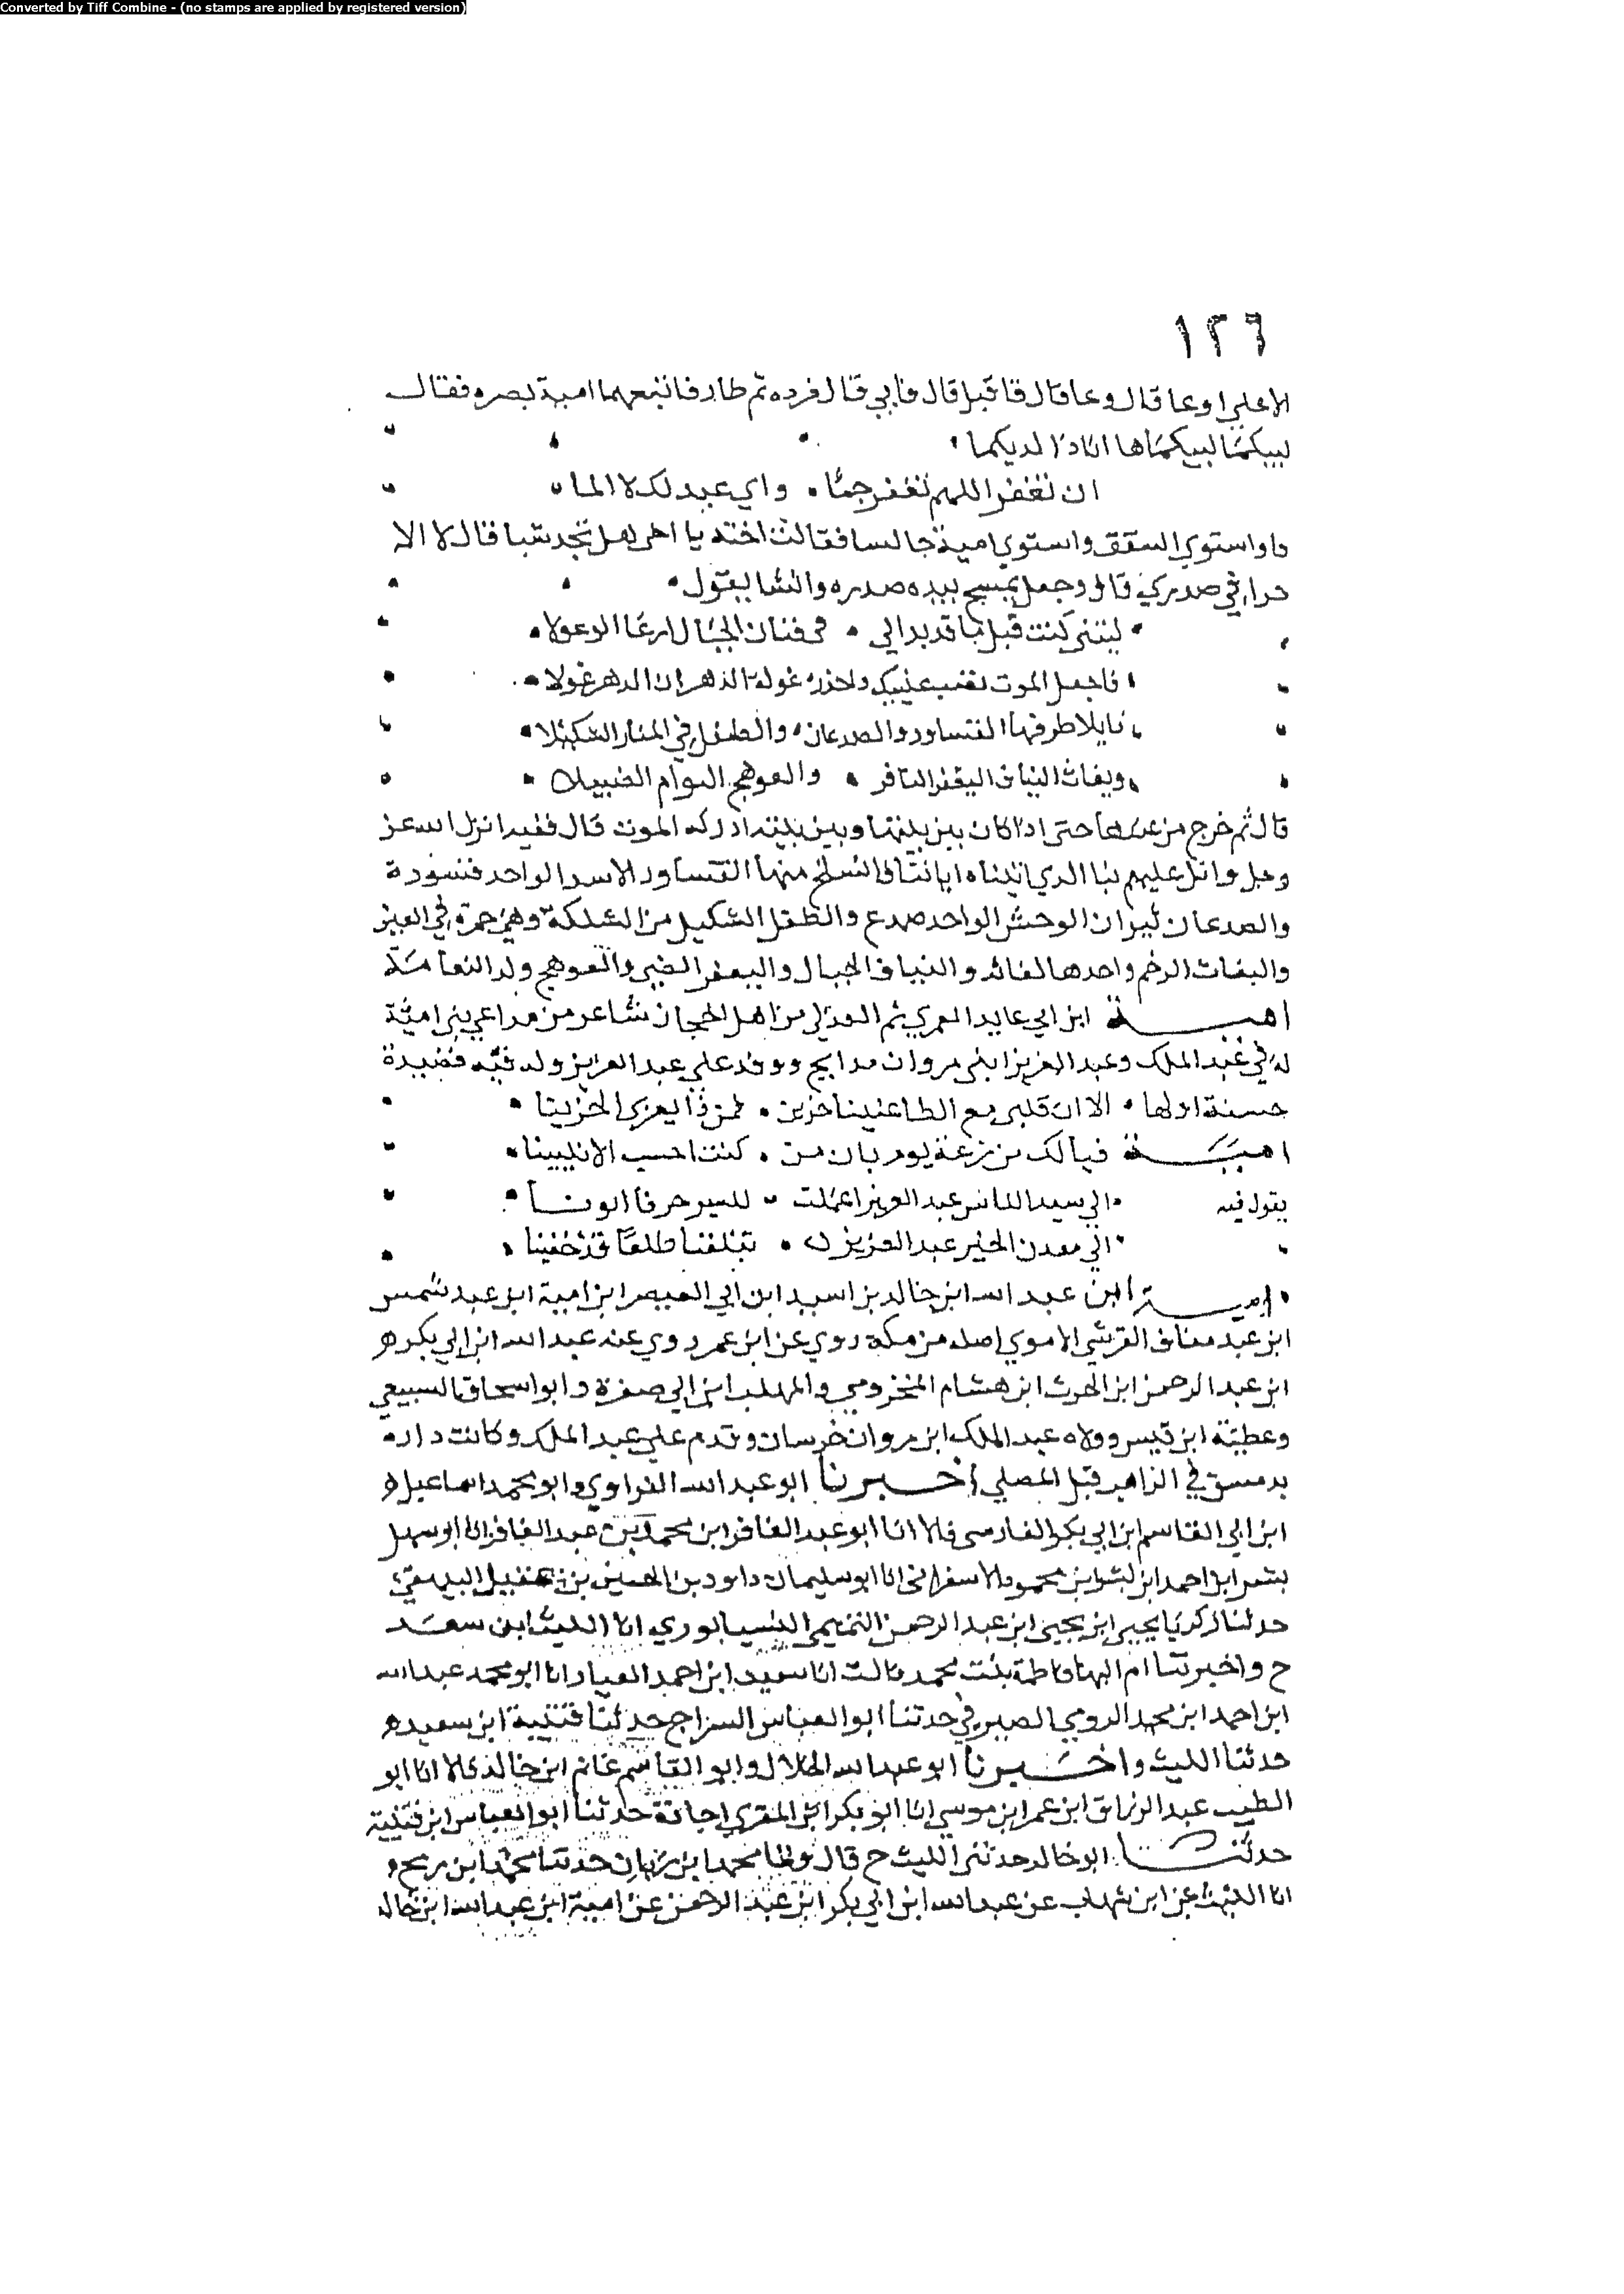 Converted by Tiff Combine - (no stamps are applied by registered version)
١٢٦
الاعلي اوعا قال وعا قال قا قبل قال فابي قال فرده ثم طار فاتبعهما امية بصره فقال
لبيكما لبيكما ها انا ذا لديكما
ان تغفر اللهم تغفر جما واي عبد لك لا الما
واستوي السقف واستوي امية جالسا فقالت اخته يا اخي هل تجد شيا قال لا الا
حرا في صدري قال وجعل يمسح بيده صدره وانشا يقول
ليتني كنت قبل ما قد بدا لي في قنان الجبال ارعا الوعولا
فاجعل الموت نصب عينيك واحذر غولة الدهر ان الدهر غولا
نايلا طرفها القساور والصدعان والطفل في المنار الشكيلا
وبغاث النياف اليعفر النافر والعوهج التوام الضييلا
قال ثم خرج من عندها حتى اذا كان بين بيتها وبين بيته ادركه الموت قال ففيه انزل الله عز
وجل واتل عليهم نبا الذي اتيناه اياتنا فانسلخ منها القساور الاسد الواحد قسورة
والصدعان ثيران الوحش الواحد صدع والطفل الشكيل من الشكلة وهي حمرة في العين
والبغاث الرخم واحدها والنياف الجبال واليعفر الظبي والعوهج ولد النعامة
امية ابن ابي عايد العمري ثم الهذلي من اهل الحجاز شاعر من مداحي بني امية
له في عبد الملك وعبد العزيز ابني مروان مدايح ووفد علي عبد العزيز وله فيه قصيدة
حسنة اولها الا ان قلبي مع الظاعنينا حزين فمن ذا يعزي الحزينا
امية فيالك من زعة يوم بان من كنت احسب الا يبينا
يقول فيه الي سيد الناس عبد العزيز اعملت للسير حرفا امونا
الي معدن الخير عبد العزيز تبلغنا ظلعا قد حفينا
امية ابن عبد الله ابن خالد بن اسيد ابن ابي العيص ابن امية ابن عبد شمس
ابن عبد مناف القرشي الاموي اصله من مكة روي عن ابن عمر روي عنه عبد الله ابن ابي بكر
ابن عبد الرحمن ابن الحرث ابن هشام المخزومي والمهلب ابن ابي صفرة وابو اسحاق السبيعي
وعطية ابن قيس وولاه عبد الملك ابن مروان خرسان وقدم علي عبد الملك وكانت داره
بدمشق في الزاهر قبل المصلي اخبرنا ابو عبد الله الفراوي وابو محمد اسماعيل
ابن ابي القاسم ابن ابي بكر الفارسي قالا انا ابو عبد الغافر ابن محمد بن عبد الغافر انا ابو سهل
بشر ابن احمد ابن بشر ابن محمود الاسفرايني انا ابو سليمان داود بن الحسين بن عقيل البيهقي
حدثنا زكريا يحيي ابن يحيي ابن عبد الرحمن التميمي النيسابوري انا الليث ابن سعد
ح واخبرتنا ام البها فاطمة بنت محمد قالت انا سعيد ابن احمد العيار انا ابو محمد عبد الله
ابن احمد ابن محمد الرومي الصيرفي حدثنا ابو العباس السراج حدثنا قتيبة ابن سعيد
حدثنا الليث واخبرنا ابو عبد الله الخلال وابو القاسم غانم ابن خالد قالا انا ابو
الطيب عبد الرزاق ابن عمر ابن موسي انا ابو بكر ابن المقري اجازة حدثنا ابو العباس ابن قتيبة
حدثنا ابو خالد حدثني الليث ح قال وانا محمد ابن زبان حدثنا محمد ابن رمح
انا الليث عن ابن شهاب عن عبد الله ابن ابي بكر ابن عبد الرحمن عن امية ابن عبد الله ابن خالد